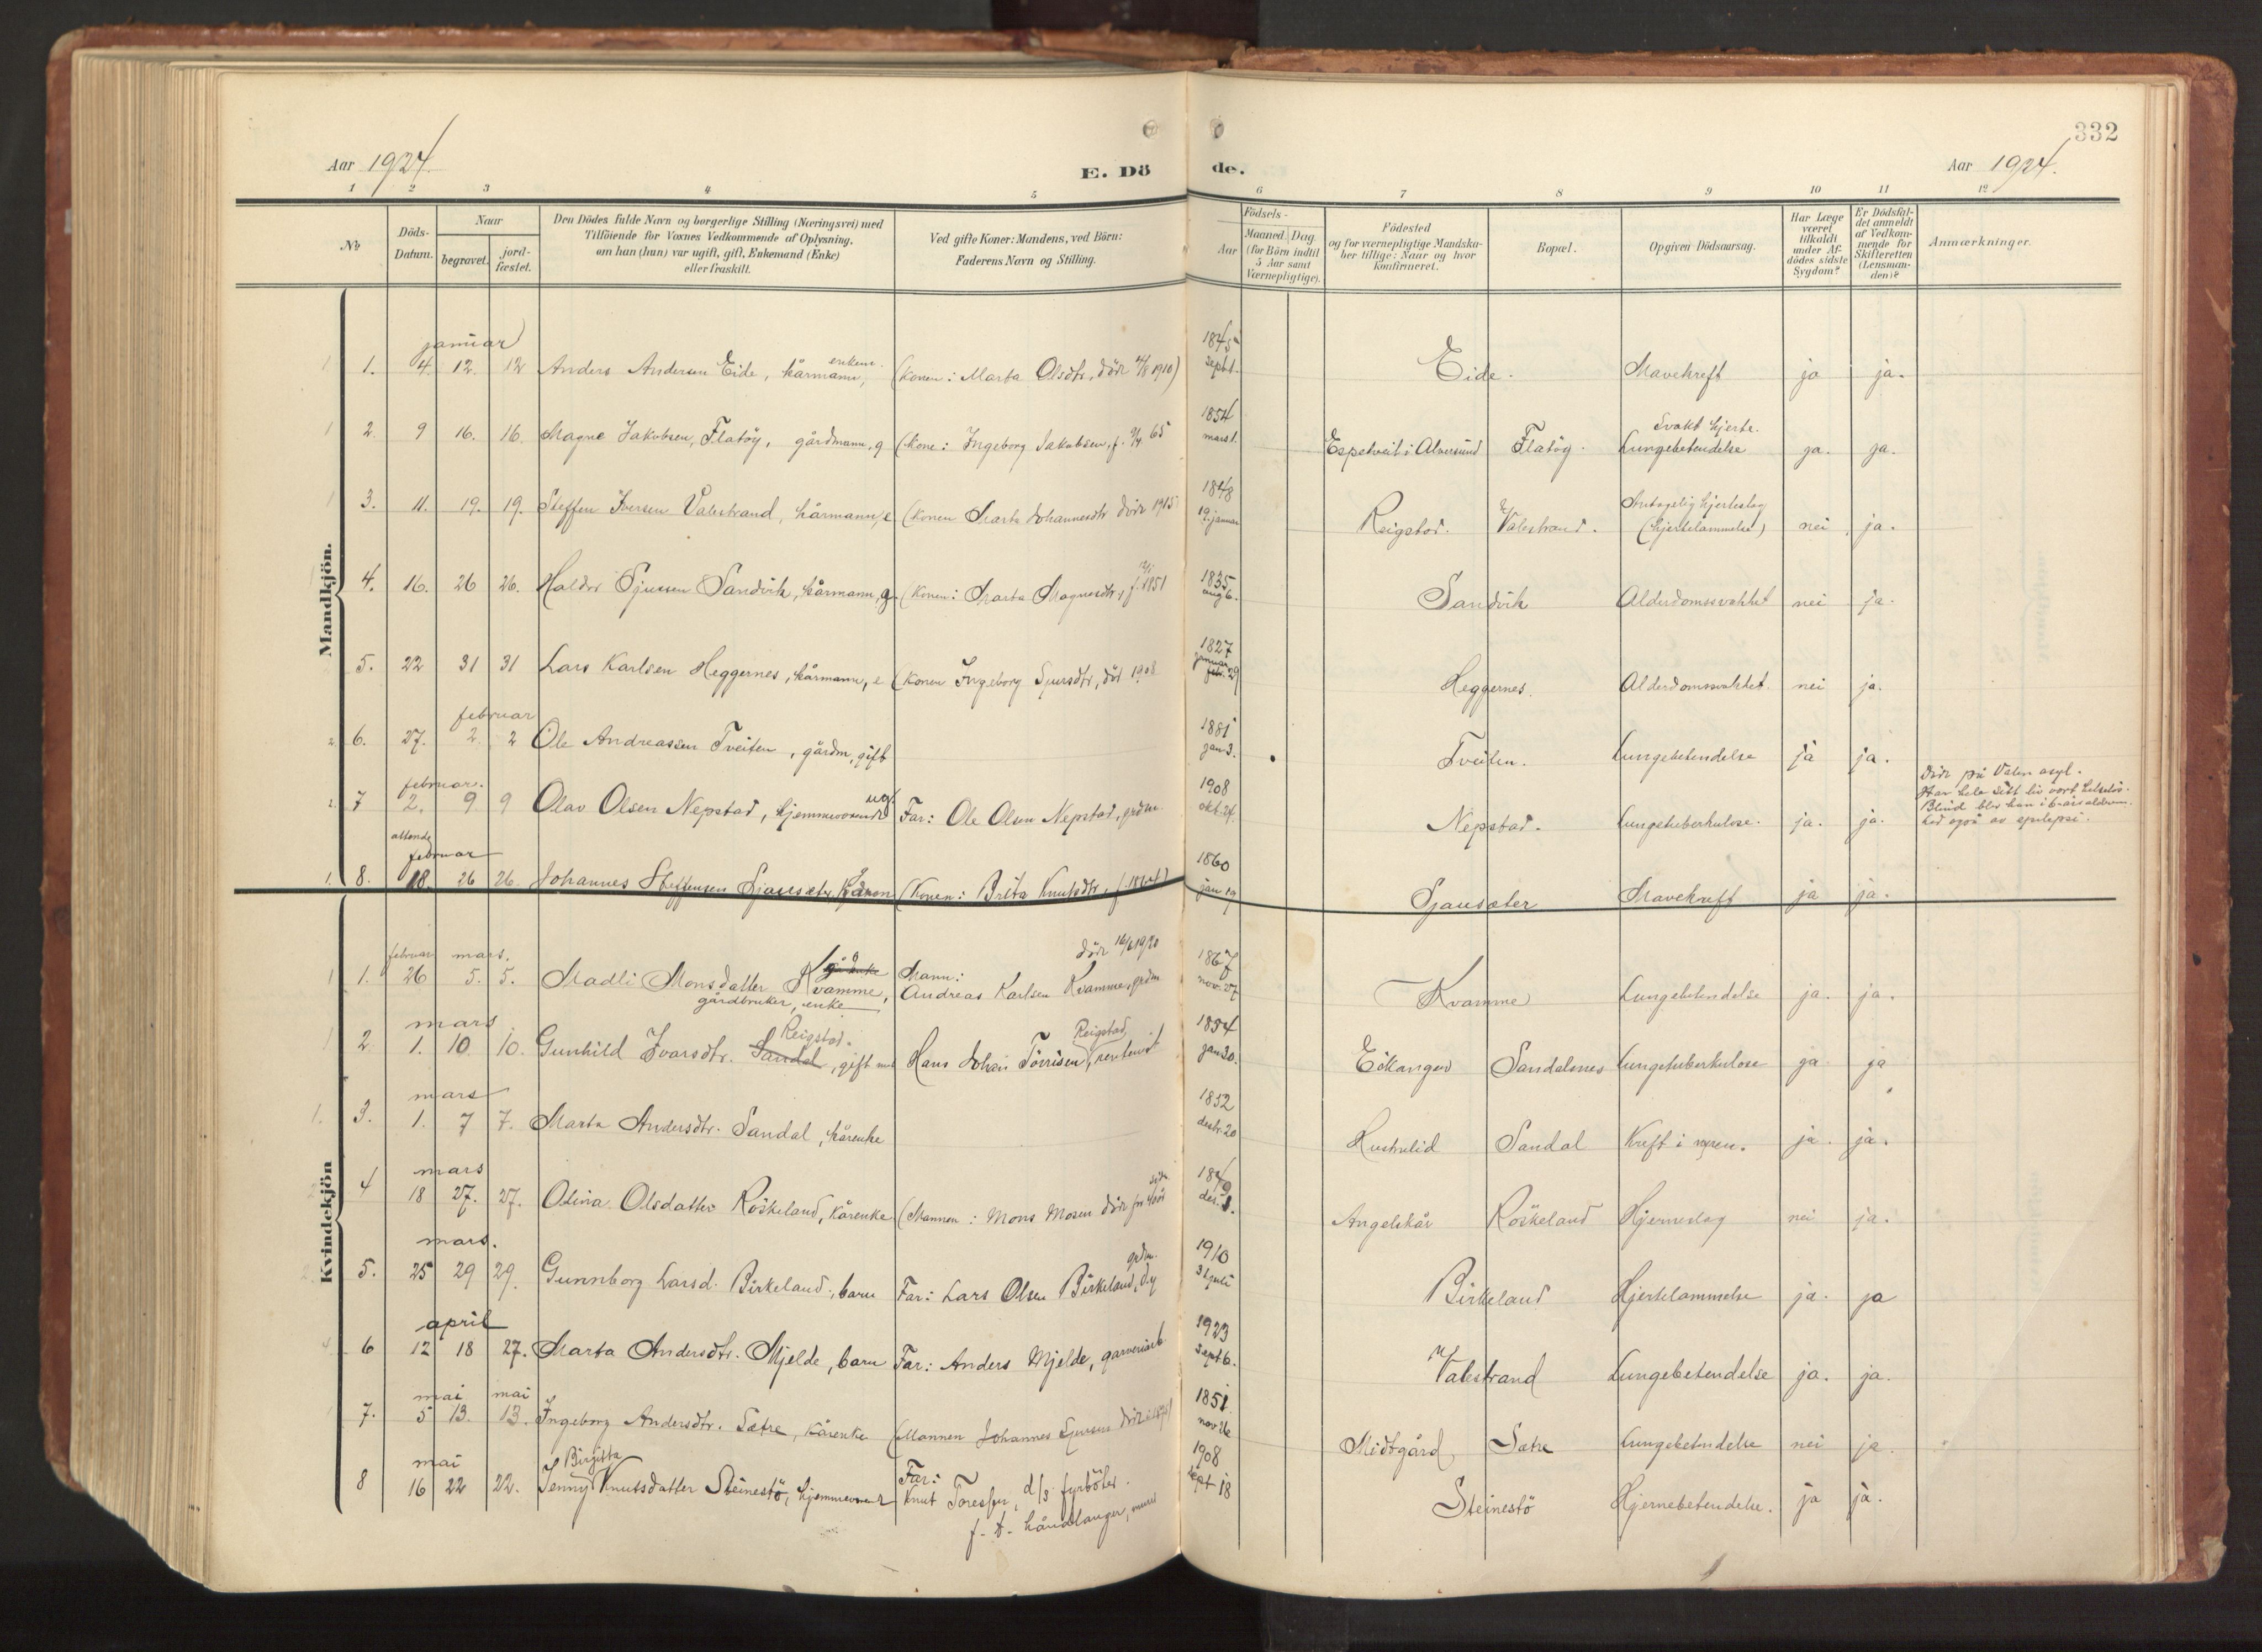 332
Aar 1924.
E. Döde.
Aar 1924.
1 2 3 4 5 6 7 8 9 10 11 12
No
Döds-Datum.
Naar
begravet.
jordfæstet.
Den Dödes fulde Navn og borgerlige Stilling (Næringsvei) med
Tilföiende for Voxnes Vedkommende af Oplysning,
om han (hun) var ugift, gift, Enkemand (Enke)
eller fraskilt.
Ved gifte Koner: Mandens, ved Börn:
Faderens Navn og Stilling.
Födsels-
Aar
Maaned. Dag
(for Börn indtil
5 Aar samt
Værnepligtige).
Födested
og for værnepligtige Mandska-
ber tillige: Naar og hvor
konfirmeret.
Bopæl.
Opgiven Dödsaarsag.
Har Læge
været
tilkaldt
under Af-
dödes sidste
Sygdom?
Er Dödsfal-
det anmeldt
af Vedkom-
mende for
Skifteretten
(Lensman-
den)?
Anmærkninger.
Mandkjön.
januar
1. 4. 12. 12 Anders Andersen Eide, kårmann, enkem. (Konen: Marta Olsdtr. död 1910) 1845 sept 1. Eide. Mavekreft ja ja.
2. 9 16. 16. Magne Jakobsen, Flatöy, gårdmann, g (Kone: Ingeborg Jakobsen, f. 65 1854 mars 1. Espetveit i Alversund Flatöy. Svakt hjerte. Lungebetendelse ja. ja.
3. 11. 19. 19. Steffen Iversen Valestrand, kårmann, e (Konen Marta Johannesdtr död 1915 1848 19. januar Reigstad. Valestrand. Antagelig hjerteslag (hjertelammelse) nei ja.
4. 16. 26 26. Haldor Sjursen Sandvik, kårmann, g. (Konen: Marta Magnesdtr, f. 1851 1835 aug 6. Sandvik Alderdomssvakhet nei ja.
5. 22 31 31 Lars Karlsen Heggernes, kårmann, e (Konen Ingeborg Sjursdtr, död 1908 1827 januar 29 Heggernes. Alderdomssvakhet. nei ja.
februar
6. 27. 2. 2 Ole Andreassen Tveiten, gårdm, gift 1881 jan 3. Tveiten. Lungebetendelse ja ja.
februar.
7 2. 9 9 Olav Olsen Nepstad, hjemmeværende ug. Far: Ole Olsen Nepstad, grdm. 1908 okt. 24. Nepstad. Lungetuberkulose. ja. ja.
Död på Valen asyl.
Har hele sitt liv vært helselös.
Blind blev han i 6 års alderen.
Led også av epilepsi.
attende
februar
8. 18. 26 26. Johannes Steffensen Sjausæter, (Konen: Brita Knutsdtr. 1860 jan 19 Sjausæter Mavekreft ja ja.
Kvindekjön
februar mars.
1. 26 5. 5. Madli Monsdatter Kvamme, gårdbruker, enke Mann: Andreas Karlsen Kvamme, grdm död 16/6 1920 1867 nov. 27 Kvamme Lungebetendelse ja. ja.
mars
2 1. 10. 10. Gunhild Ivarsdtr. Sandal Reigstad., gift med Hans Johan Törrisen Reigstad, rentenist 1854 jan 30. Eikanger Sandalsnes Lungetuberkulose ja ja
mars
3. 1. 7 7. Marta Andersdtr. Sandal, kårenke 1852 desbr. 20 Hushelid Sandal Kreft i ja. ja.
mars
4 18 27. 27. Olina Olsdatter Röskeland, kårenke (Mannen: Mons Mosen död for år siden des. 1. Angelskår Röskeland Hjerneslag nei ja.
mars.
5. 25 29 29. Gunnborg Larsd. Birkeland, barn Far: Lars Olsen Birkeland, grdm. 1910 31 juli Birkeland Hjertelammelse ja. ja
april
6 12 18 27. Marta Andersdtr. Mjelde, barn Far: Anders Mjelde, garveriarb. 1923 sept 6. Valestrand Lungebetendelse ja. ja.
mai mai
7. 5 13. 13. Ingeborg Andersdtr. Sætre, kårenke (Mannen Johannes Sjursen död 1851 nov 26 Midtgård Sætre Lungebetendelse nei ja.
mai
8 16 22 22. Jenny Birgitta Knutsdatter Steinestö, hjemmeværende Far: Knut Toressen, d/s fyrböter. f. t. håndlanger, 1908 sept 18 Steinestö Hjernebetendelse. ja ja.